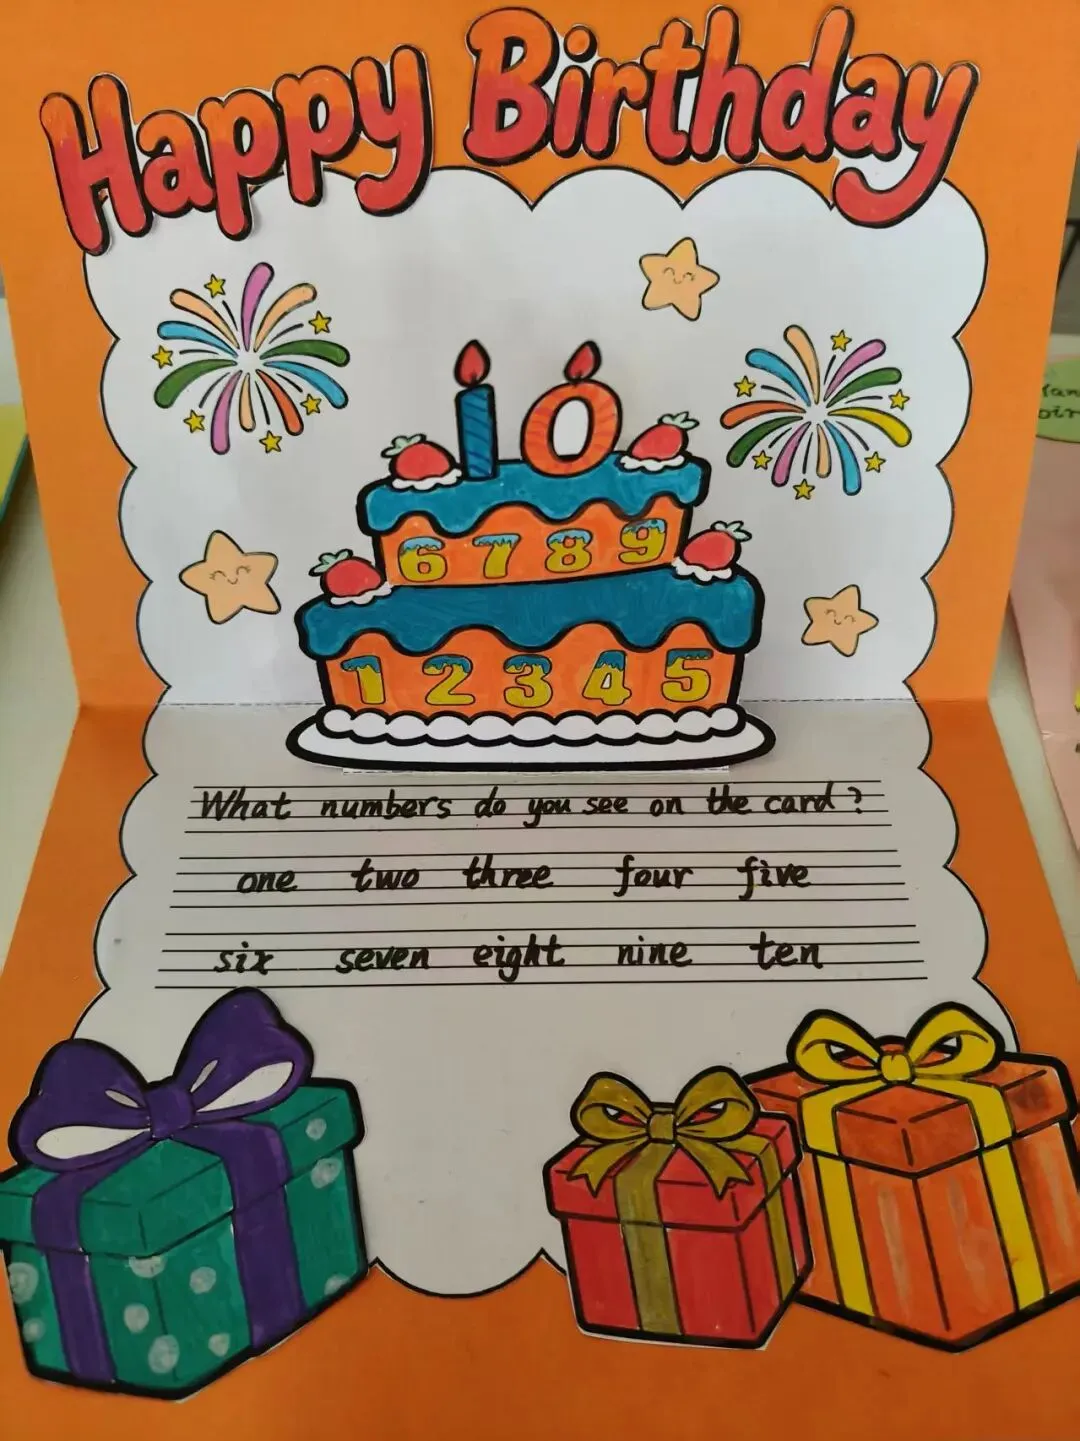 Happy Birthday
10
6 7 8 9
1 2 3 4 5
What numbers do you see on the card?
one two three four five
six seven eight nine ten